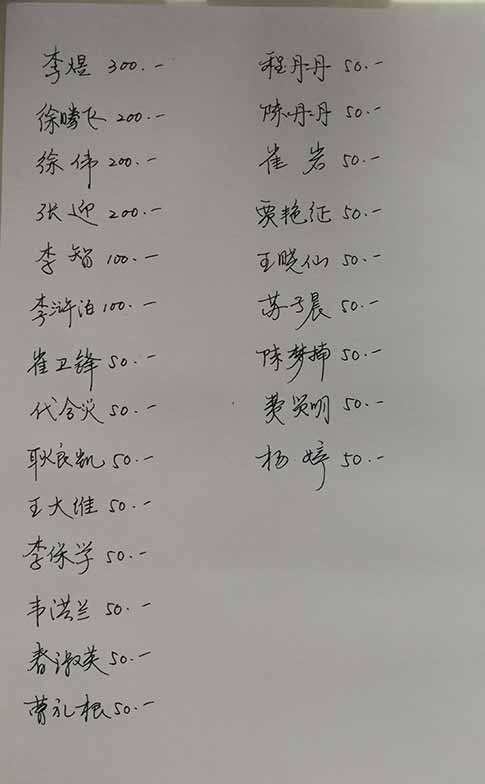 李煜 300.-
徐腾飞 200.-
徐伟 200.-
张迎 200.-
李智 100.-
李浒泊 100.-
崔卫锋 50.-
代令炎 50.-
耿良凯 50.-
王大维 50.-
李保学 50.-
韦洪兰 50.-
春淑英 50.-
曹礼根 50.-
程丹丹 50.-
陈丹丹 50.-
崔岩 50.-
贾艳征 50.-
王晓仙 50.-
苏子晨 50.-
陈梦楠 50.-
龚贤明 50.-
杨婷 50.-